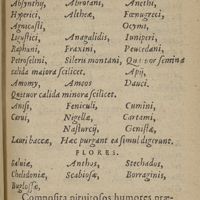 Absynthij, Abrotani, Anethi,
Hyperici, Altheæ, Fœnugreci,
Agnicasti, Ocymi,
Ligustici, Anagalidis, Iuniperi,
Raphani, Fraxini, Peucedani,
Petroselini, Sileris montani, Quatuor semina
calida maiora scilicet. Apij,
Amomy, Ameos Dauci.
Quatuor calida minora scilicet.
Anisi, Feniculi, Cumini,
Carui, Nigellæ, Cartami,
Nasturcij, Genistæ,
Lauri baccæ, Hæc purgant ea simul digerunt.
FLORES.
Saluiæ, Anthos, Stechados,
Chelidoniæ, Scabiosæ, Borraginis,
Buglossæ,
Composita pituitosos humores præ-